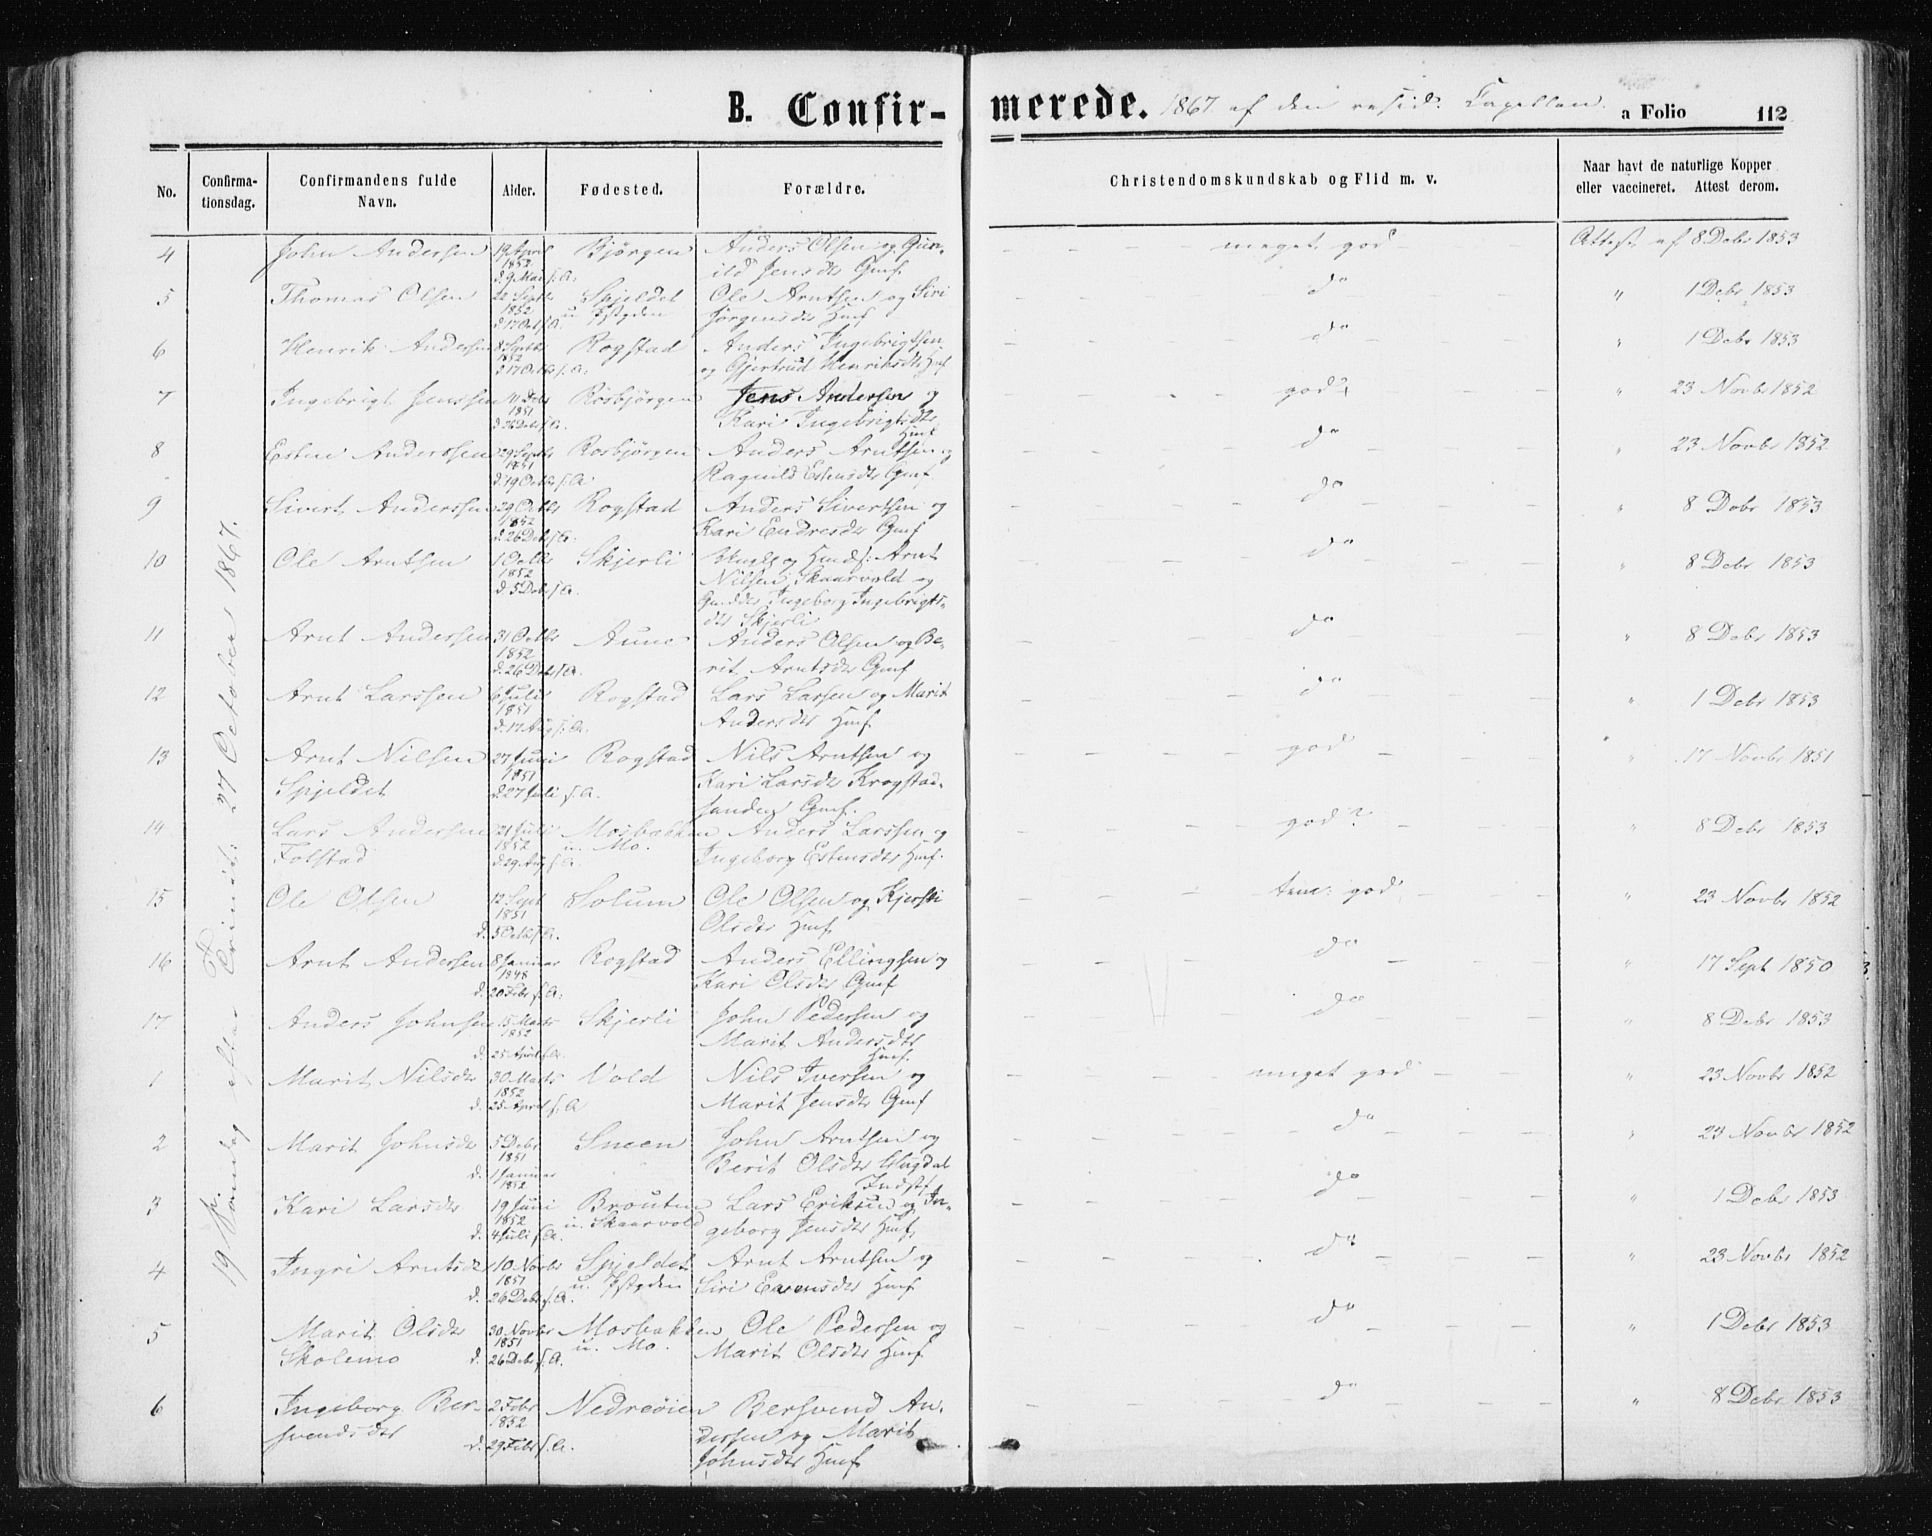 B. Confir-merede. 1867 af den resid: Capellan. a Folio 112
No. Confirma-tionsdag. Confirmandens fulde Navn. Alder. Fødested. Forældre. Christendomskundskab og Flid m. v. Naar havt de naturlige Kopper eller vaccineret. Attest derom.
19 Søndag efter Trinit: 27 October 1867.
4 John Andersen 19 April Bjørgen Anders Olsen og Gun- meget god Attest af 8 Debr 1853
1852 ild Jensdr Gmf.
d. 9 Mai s. A.
5 Thomas Olsen 22 Septbr Spjeldet Ole Arntsen og Siri do " 1 Debr 1853
1852 u. Jørgensdr Hmf
d. 17 Oct s. A.
6 Henrik Andersen 8 Septbr Rogstad Anders Ingebrigtsen do " 1 Debr 1853
1852 og Gjertrud Henriksdr Hmf
d. 17 Octbr s. A.
7 Ingebrigt Jenssen 11 Debr Rosbjørgen Jens Andersen og god? " 23 Novbr 1852
1851 Kari Ingebrigtsdtr
d. 26 Debr s. A. Hmf
8 Esten Anderssen 29 Septbr Rosbjørgen Anders Arntsen og do " 23 Novbr 1852
1851 Ragnild Estensdr Gmf
d. 19 Octbr s. A
9 Sivert Anderssen 29 Octbr Rogstad Anders Sivertsen og do " 8 Debr 1853
1852 Kari Endresdr Gmf
d. 26 Debr s. A.
10 Ole Arntsen 1 Octbr Skjerli Ungk og Hmds: Arnt do " 8 Debr 1853
1852 Nilsen Skaarvold og
d. 5 Debr s. A. Gmddr Ingeborg Ingebrigts-
dr Skjerli
11 Arnt Andersen 31 Octbr Aune Anders Olsen og Be- do " 8 Debr 1853
1852 rit Arntsdr Gmf
d. 26 Debr s. A.
12 Arnt Larssen 6 Juli Rogstad Lars Larsen og Marit do " 1 Debr 1853
1851 Andersdr Hmf
d. 17 Aug s. A.
13 Arnt Nilsen 27 Juni Rogstad Nils Arntsen og god " 17 Novbr 1851
Spjeldet 1851 Kari Larsdr Krogstad-
d. 27 Juli s. A. sanden Gmf.
14 Lars Andersen 21 Juli Mosbakken Anders Larssen og god? " 8 Debr 1853
Folstad 1852 u. Mo. Ingeborg Estensdr Hmf.
d. 29 Aug s. A.
15 Ole Olsen 12 Sept Solum Ole Olsen og Kjersti tem: god " 23 Novbr 1852
1851 Olsdtr Hmf
d. 5 Octbr s. A.
16 Arnt Andersen 8 Januar Rogstad Anders Ellingsen og do " 17 Sept 1850
1848 Kari Olsdr Gmf
d. 20 Febr s. A.
17 Anders Johnsen 15 Marts Skjerli John Pedersen og do " 8 Debr 1853
1852 Marit Andersdtr
d. 25 April s. A. Hmf.
1 Marit Nilsdr 30 Marts Vold Nils Iversen og meget god " 23 Novbr 1852
1852 Marit Jensdr Gmf
d. 25 April s. A
2 Marit Johnsdr 5 Debr Sneen John Arntsen og do " 23 Novbr 1852
1851 Berit Olsdr Hugdal
d. 1 Januar Indstf
1852
3 Kari Larsdr 19 Juni Brouten Lars Eriksen og In- do " 1 Debr 1853
1852 u. Skaarvold geborg Jensdr Hmf.
d. 4 Juli s. A.
4 Ingri Arntsdr 10 Novbr Spjeldet Arnt Arntsen og do " 23 Novbr 1852
1851 u. Siri Estensdr Hmf
d. 26 Debr s. A.
5 Marit Olsdr 30 Novbr Mosbakken Ole Pedersen og do " 1 Debr 1853
Skolemo 1851 u. Mo. Marit Olsdtr Hmf
d. 26 Debr s. A.
6 Ingeborg Ber- 2 Febr Nedreøien Bersvend An- do " 8 Debr 1853
svendsdtr 1852 dersen og Marit
d. 29 Febr s. A. Johnsdtr Hmf